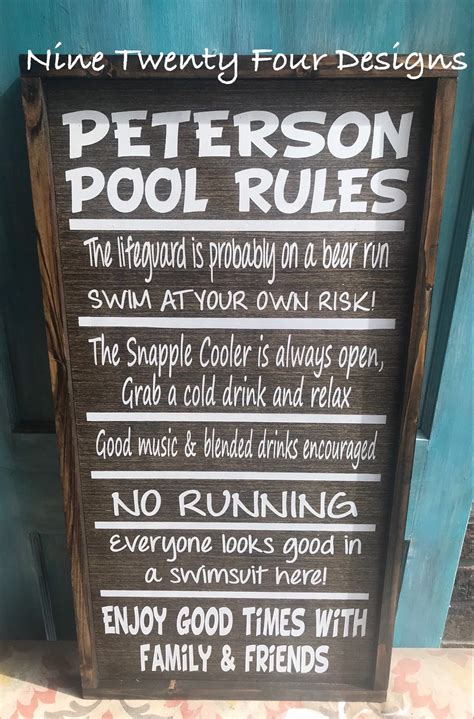 Nine Twenty Four Designs
PETERSON
POOL RULES
The lifeguard is probably on a beer run
SWIM AT YOUR OWN RISK!
The Snapple Cooler is always open,
Grab a cold drink and relax
Good music & blended drinks encouraged
NO RUNNING
Everyone looks good in
a swimsuit here!
ENJOY GOOD TIMES WITH
FAMILY & FRIENDS